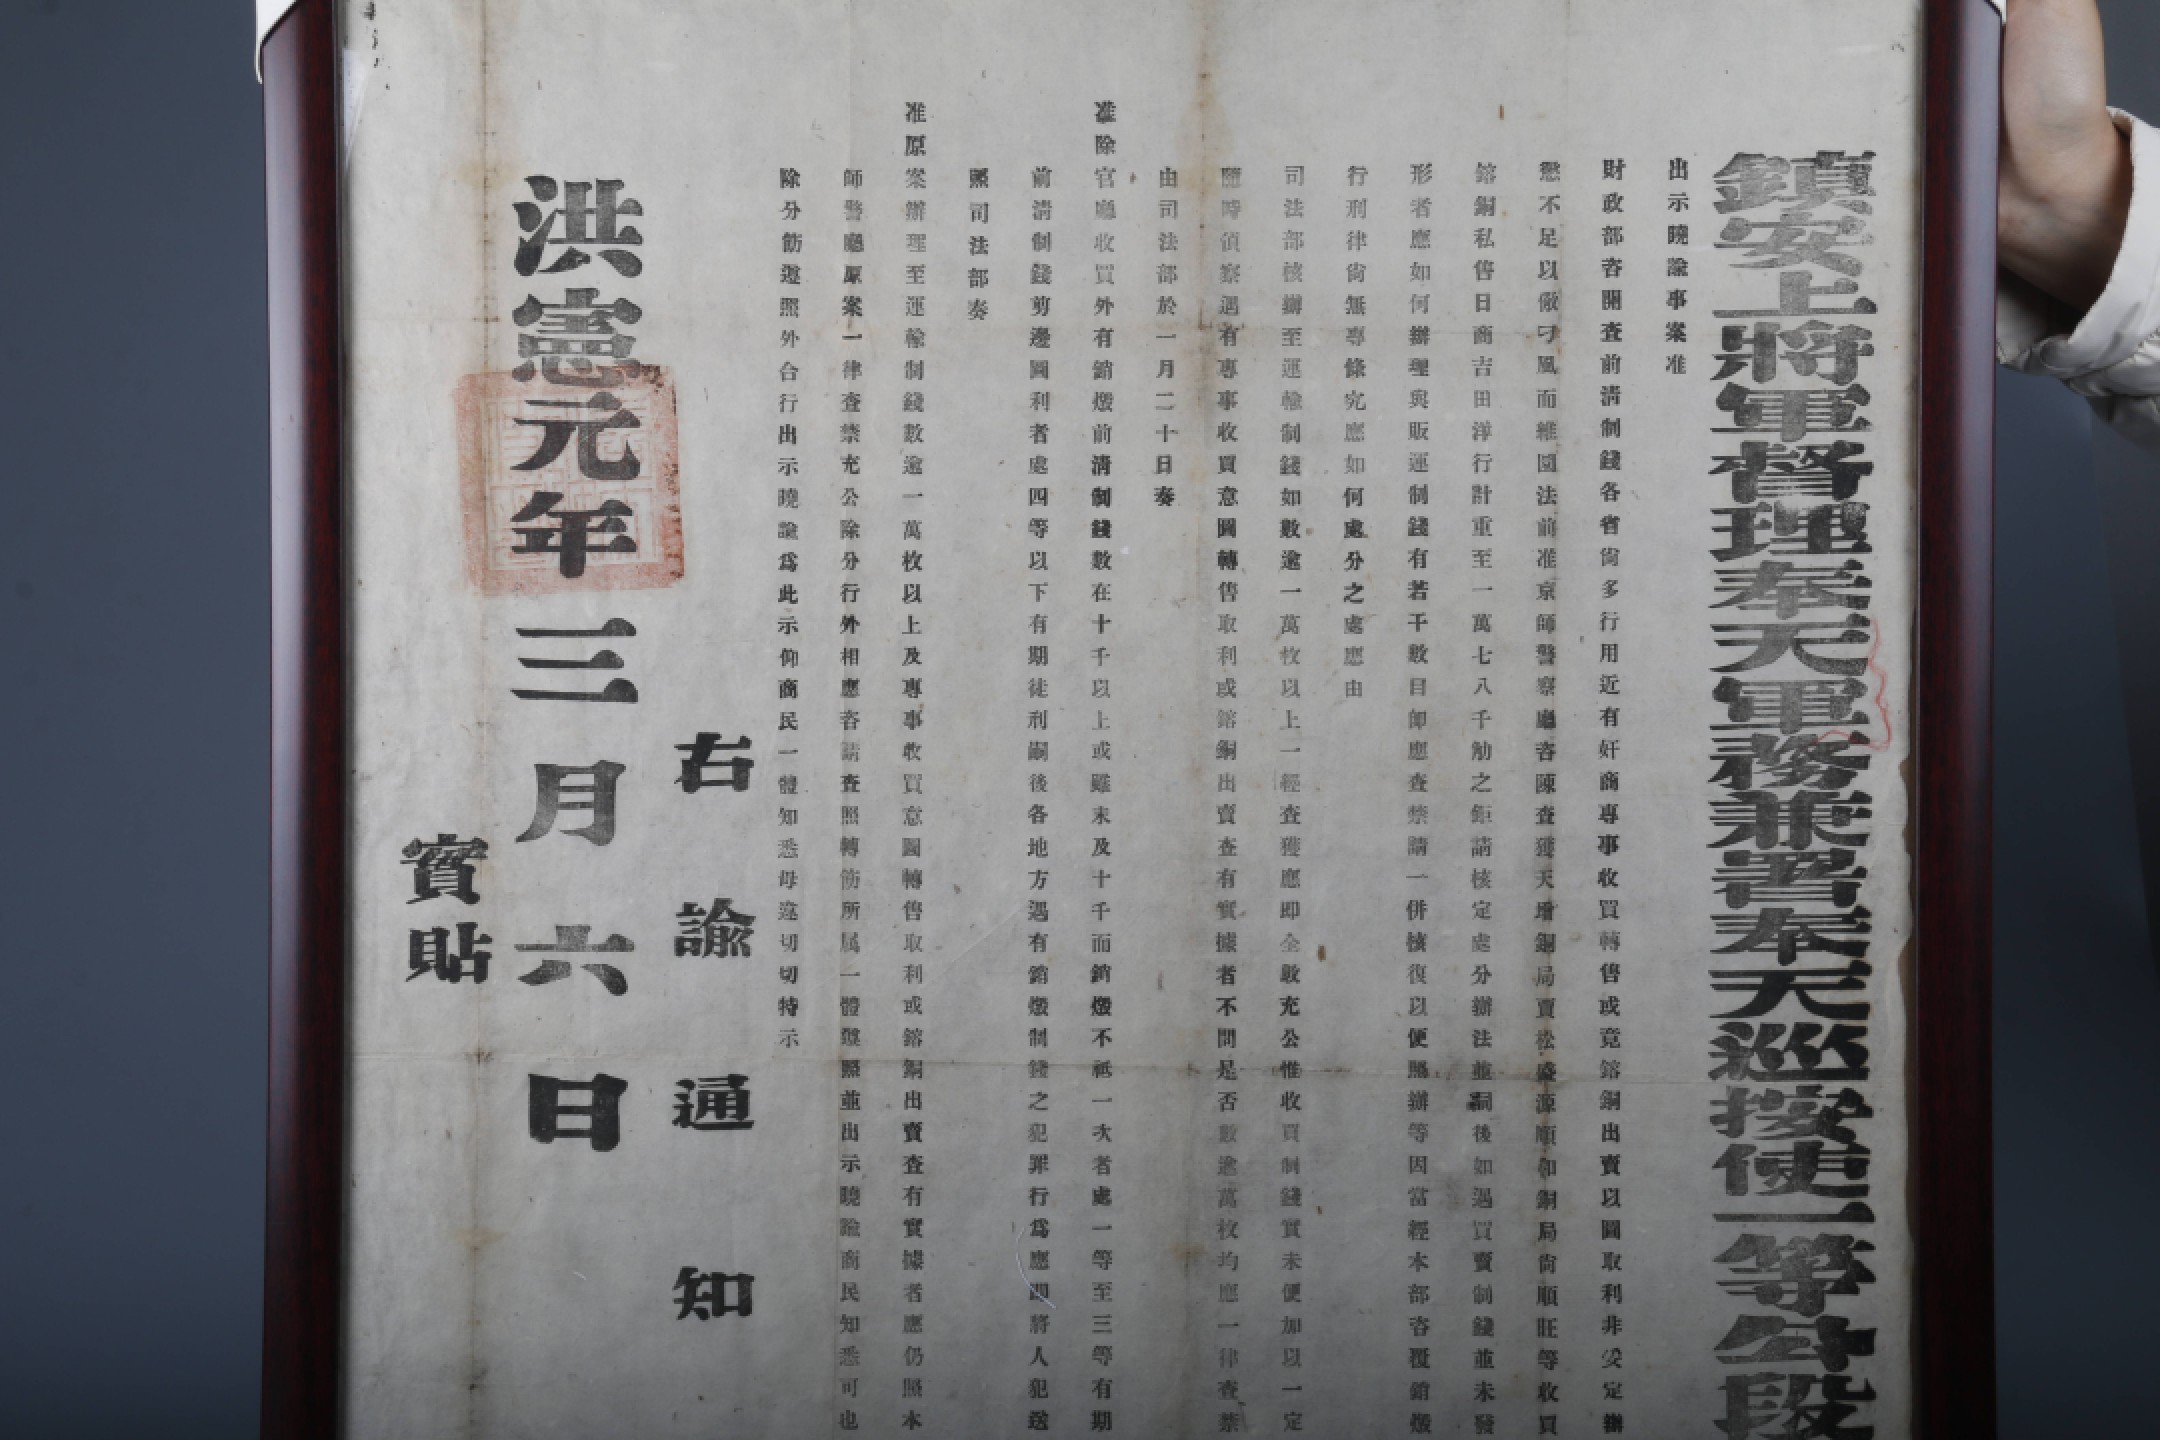 鎮安上將軍督理奉天軍務兼署奉天巡按使一等公段
出示曉諭事案准
財政部咨開查前淸制錢各省尙多行用近有奸商專事收買轉售或竟鎔銅出賣以圖取利非妥定辦
懲不足以儆刁風而維圜法前准京師警察廳咨陳查獲天增銅局賈松盛源順和銅局尙順旺等收買
鎔銅私售日商吉田洋行計重至一萬七八千觔之鉅請核定處分辦法並嗣後如遇買賣制錢並未發
形者應如何辦理與販運制錢有若干數目卽應查禁請一併核復以便照辦等因當經本部咨覆銷燬
行刑律尙無專條究應如何處分之處應由
司法部核辦至運輸制錢如數逾一萬枚以上一經查獲應即全數充公惟收買制錢實未便加以一定
隨時偵察遇有專事收買意圖轉售取利或鎔銅出賣查有實據者不問是否數逾萬枚均應一律查禁
由司法部於一月二十日奏
准除官廳收買外有銷燬前淸制錢數在十千以上或雖未及十千而銷燬不祗一次者處一等至三等有期
前淸制錢剪邊圖利者處四等以下有期徒刑嗣後各地方遇有銷燬制錢之犯罪行爲應即將人犯送
照司法部奏
准原案辦理至運輸制錢數逾一萬枚以上及專事收買意圖轉售取利或鎔銅出賣查有實據者應仍照本
師警廳原案一律查禁充公除分行外相應咨請查照轉飭所属一體遵照並出示曉諭商民知悉可也
除分飭遵照外合行出示曉諭爲此示仰商民一體知悉毋違切切特示
右諭通知
洪憲元年三月六日
實貼